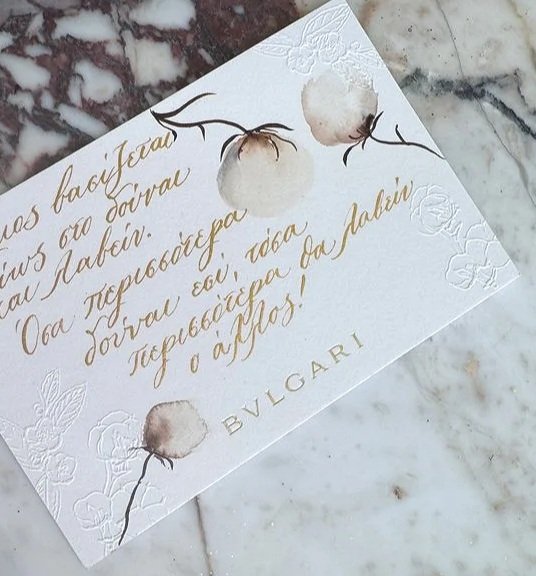 βασίζεται
στο δούναι
και λαβείν.
Όσα περισσότερα
δούναι εσύ, τόσα
περισσότερα θα λαβείν
ο άλλος!
BVLGARI